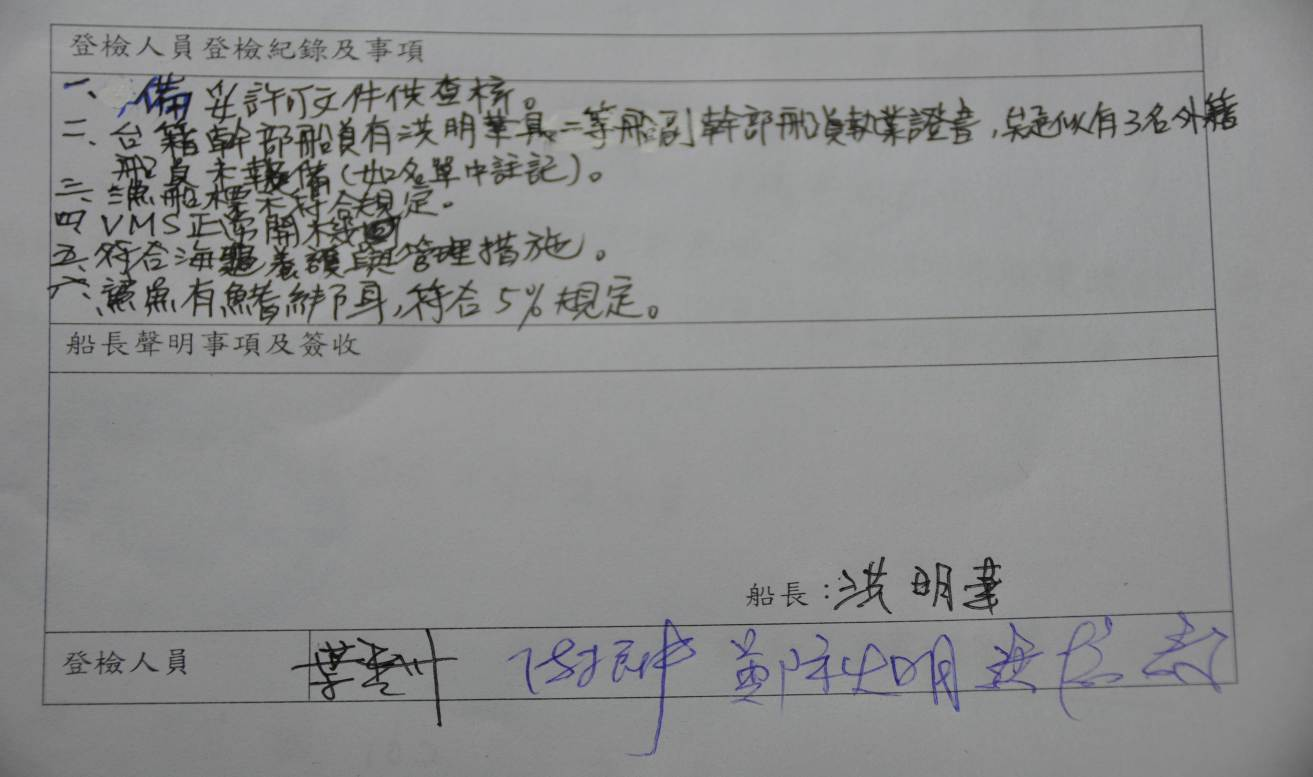 登檢人員登檢紀錄及事項
一、備妥許可文件供查核。
二、台籍幹部船員有洪明華具二等船副幹部船員執業證書，疑似有3名外籍
船員未報備(如名單中註記)。
三、漁船標示符合規定。
四、VMS正常開機
五、符合海龜養護與管理措施。
六、鯊魚有鰭綁身，符合5%規定。
船長聲明事項及簽收
船長：洪明華
登檢人員